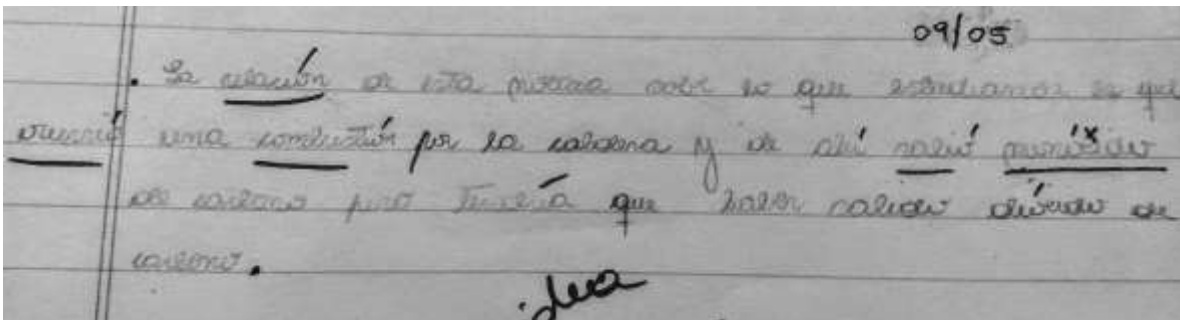 09/05
. La relación de esta noticia sobre lo que estudiamos es que
ocurrió una combustión por la caldera y de ahí salió monóxido
de carbono pero tendría que haber salido dióxido de
carbono.